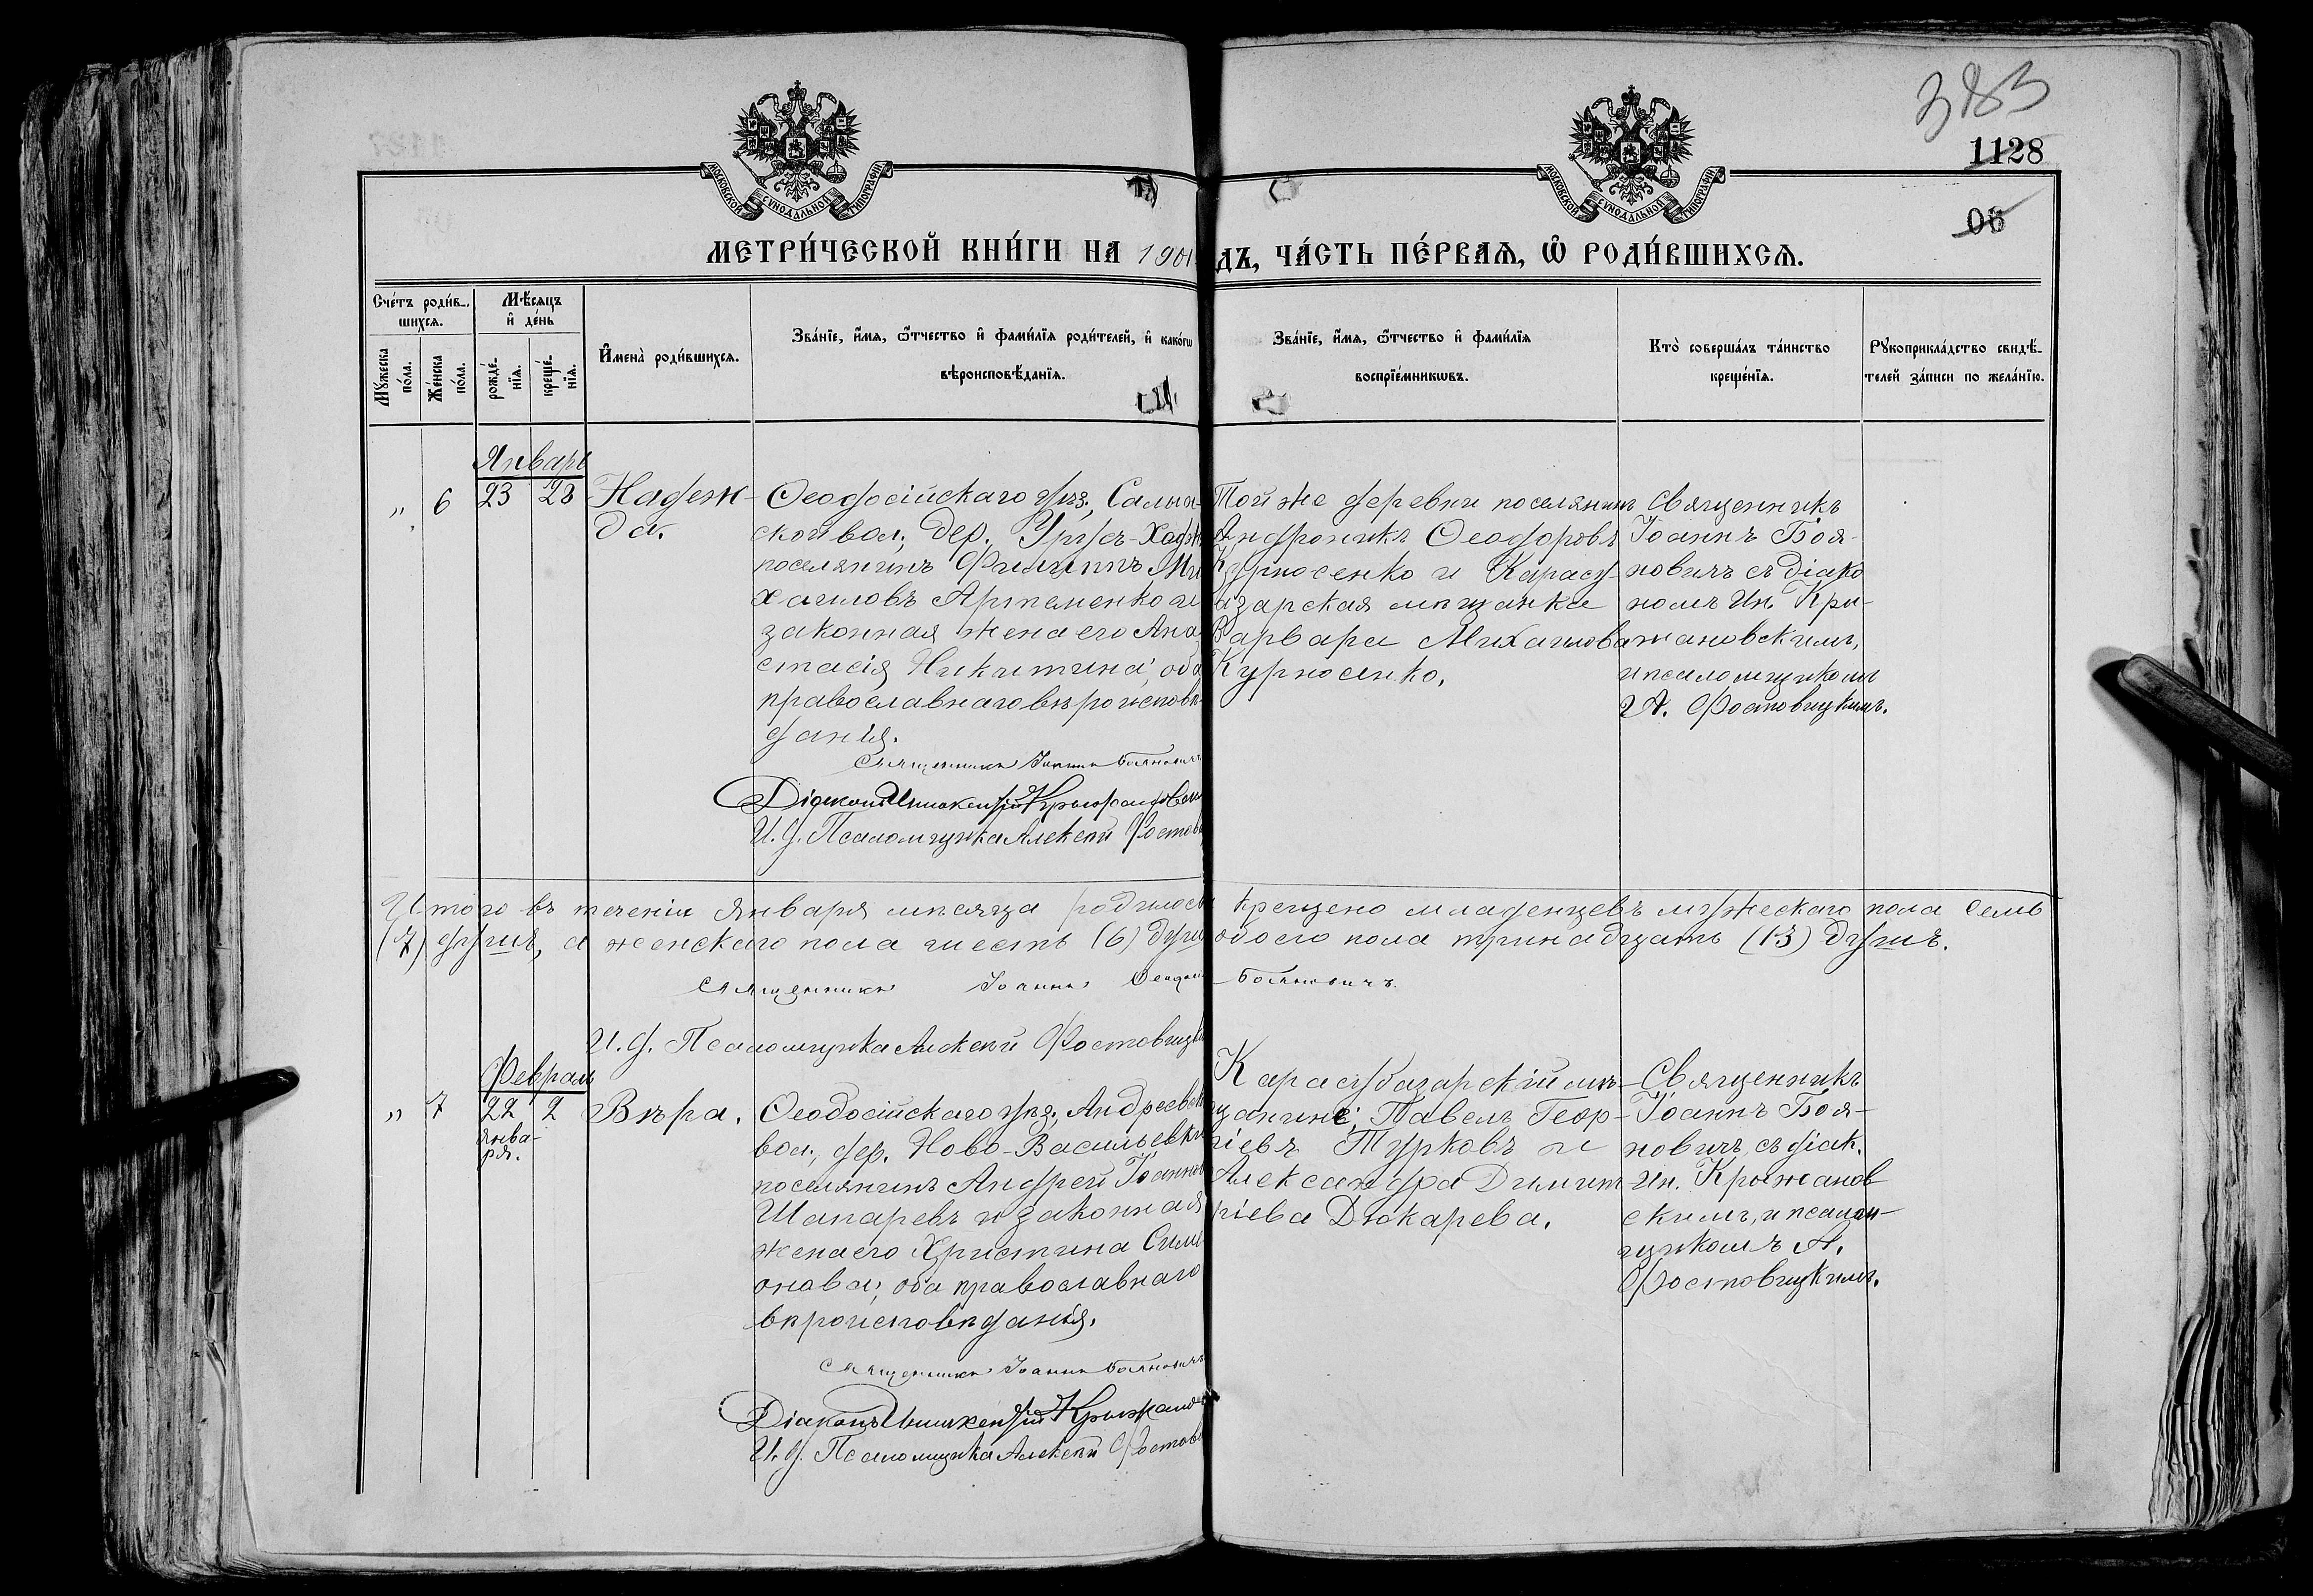 383
1128
06
МОСКОВСКОЙ СѴНОДАЛЬНОЙ ТИПОГРАФІИ
МОСКОВСКОЙ СѴНОДАЛЬНОЙ ТИПОГРАФІИ
МЕТРИ́ЧЕСКОЙ КНИ́ГИ НА 1901 ДЪ, ЧА́СТЬ ПЕ́РВАѦ, Ѡ҆ РОДИ́ВШИХСѦ.
Сче́тъ роди́в-
шихсѧ.
Мꙋ́жеска
по́ла.
Же́нска
по́ла.
Мѣ́сѧцъ
и҆ де́нь
рожде́-
нїѧ.
креще́-
нїѧ.
И҆мена̀ роди́вшихсѧ.
Зва́нїе, и҆́мѧ, ѻ҆́тчество и҆ фами́лїѧ роди́телей, и҆ како́гѡ
вѣроисповѣ́данїѧ.
Зва́нїе, и҆́мѧ, ѻ҆́тчество и҆ фами́лїѧ
воспрїе́мникѡвъ.
Кто̀ соверша́лъ та́инство
креще́нїѧ.
Рꙋкоприкла́дство свидѣ́-
телей за́писи по жела́нїю.
Январь
„ 6 23 28
Надеж-
да.
Ѳеодосійскаго уѣз., Салын-
ской вол., дер. Урусъ-Ходж
поселянинъ Филиппъ Ми
хаиловъ Артеменко и
законная жена его Ана
стасія Никитина, оба
православнаго вѣроисповѣ-
данія.
Священникъ Іоаннъ Бояновичъ
Діаконъ Иннокентій Крыжановск
И. д. Псаломщика Алексѣй Фостов
Той же деревни поселянинъ
Андроникъ Ѳеодоровъ
Курносенко и Карасу-
азарская мѣщанка
Варвара Михаилова
Курносенко.
Священникъ
Іоаннъ Боя-
новичъ съ діако
номъ Ин. Кры-
жановскимъ,
и псаломщикомъ
А. Фостовицкимъ.
Итого въ теченіи января мѣсяца родилось крещено младенцевъ мужескаго пола семь
(7) душъ, а женскаго пола шесть (6) душ обоего пола тринадцать (13) душъ.
Священникъ Іоаннъ Бояновичъ.
И. д. Псаломщика Алексѣй Фостовицк
Февраль
„ 7 22 2
янва-
ря.
Вѣра.
Ѳеодосійскаго уѣз., Андреевск
вол., дер. Ново-Васильевки
поселянинъ Андрей Іоаннов
Шапаревъ и законная
жена его Христина Симе
онова, оба православнаго
вѣроисповѣданія.
Священникъ Іоаннъ Бояновичъ
Діаконъ Иннокентій Крыжанов
И. д. Псаломщика Алексѣй Фостов
Карасубазарскій мѣ-
щанинъ, Павелъ Геор-
гіевъ Турковъ и
Александра Димит
ріева Дюкарева.
Священникъ
Іоаннъ Боя-
новичъ, съ діак.
Ин. Крыжанов
скимъ, и псалом-
щикомъ А.
Фостовицкимъ.